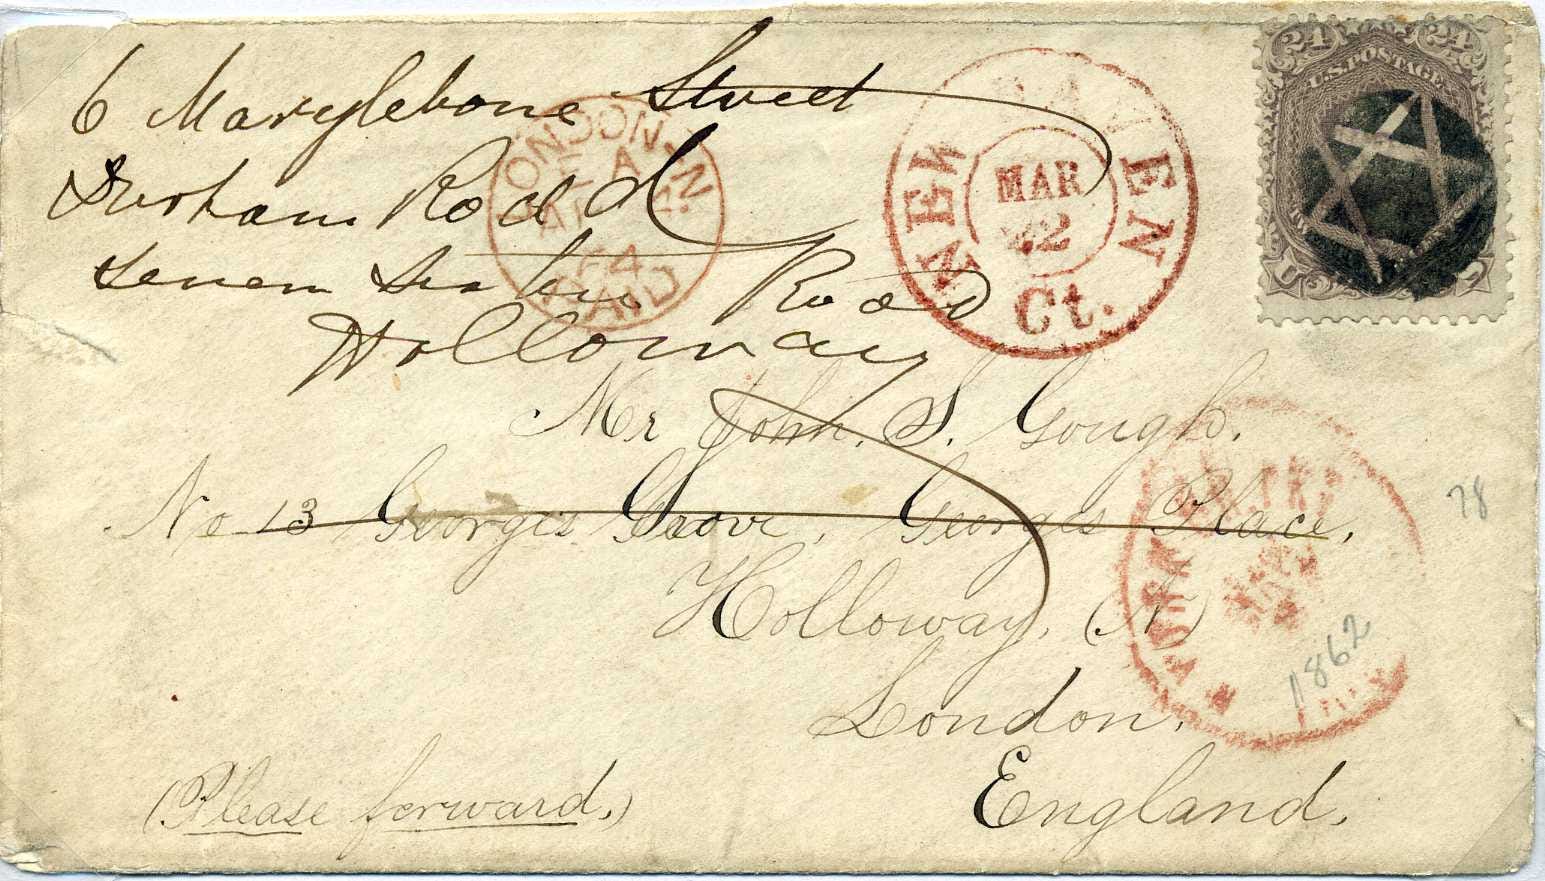 6 Marylebone Street
Durham Road
Seven Sisters Road
Holloway
LONDON. N
PAID
NEW HAVEN
MAR
22
Ct.
24 24
U.S. POSTAGE
Mr John. S. Gough.
No 13 Georges Grove, Georges Place,
Holloway, (N)
London,
England.
(Please forward.)
78
1862